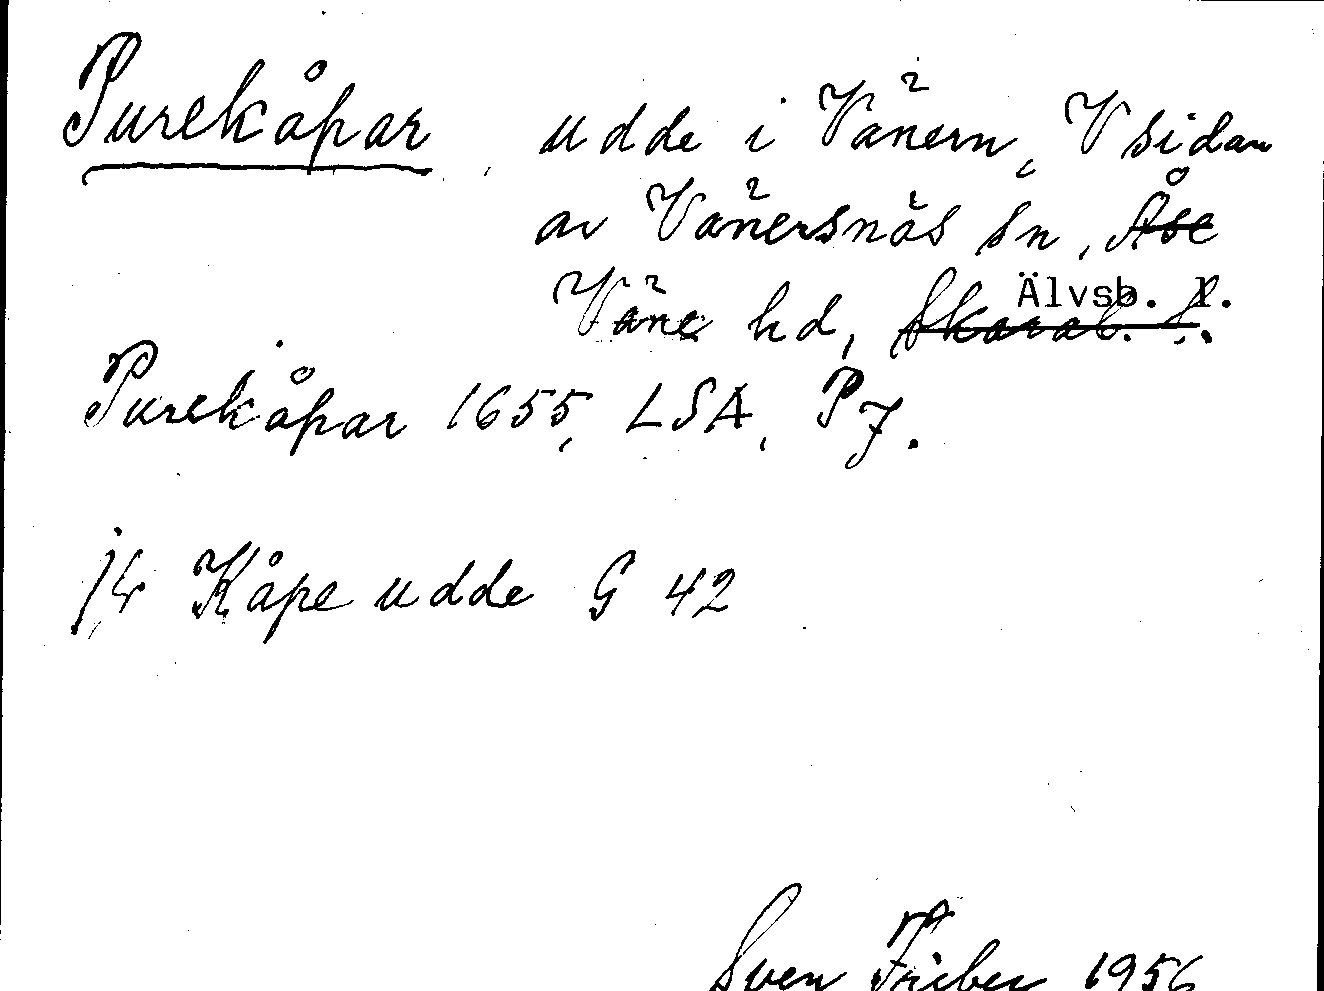 Purekåpar, udde i Vänern, V sidan
av Vänersnäs sn, Åse
Väne hd, Skarab. l.
Älvsb. l.
Purekåpar 1655, LSA, P 7.
jfr Kåpe udde G 42
Sven Friber 1956